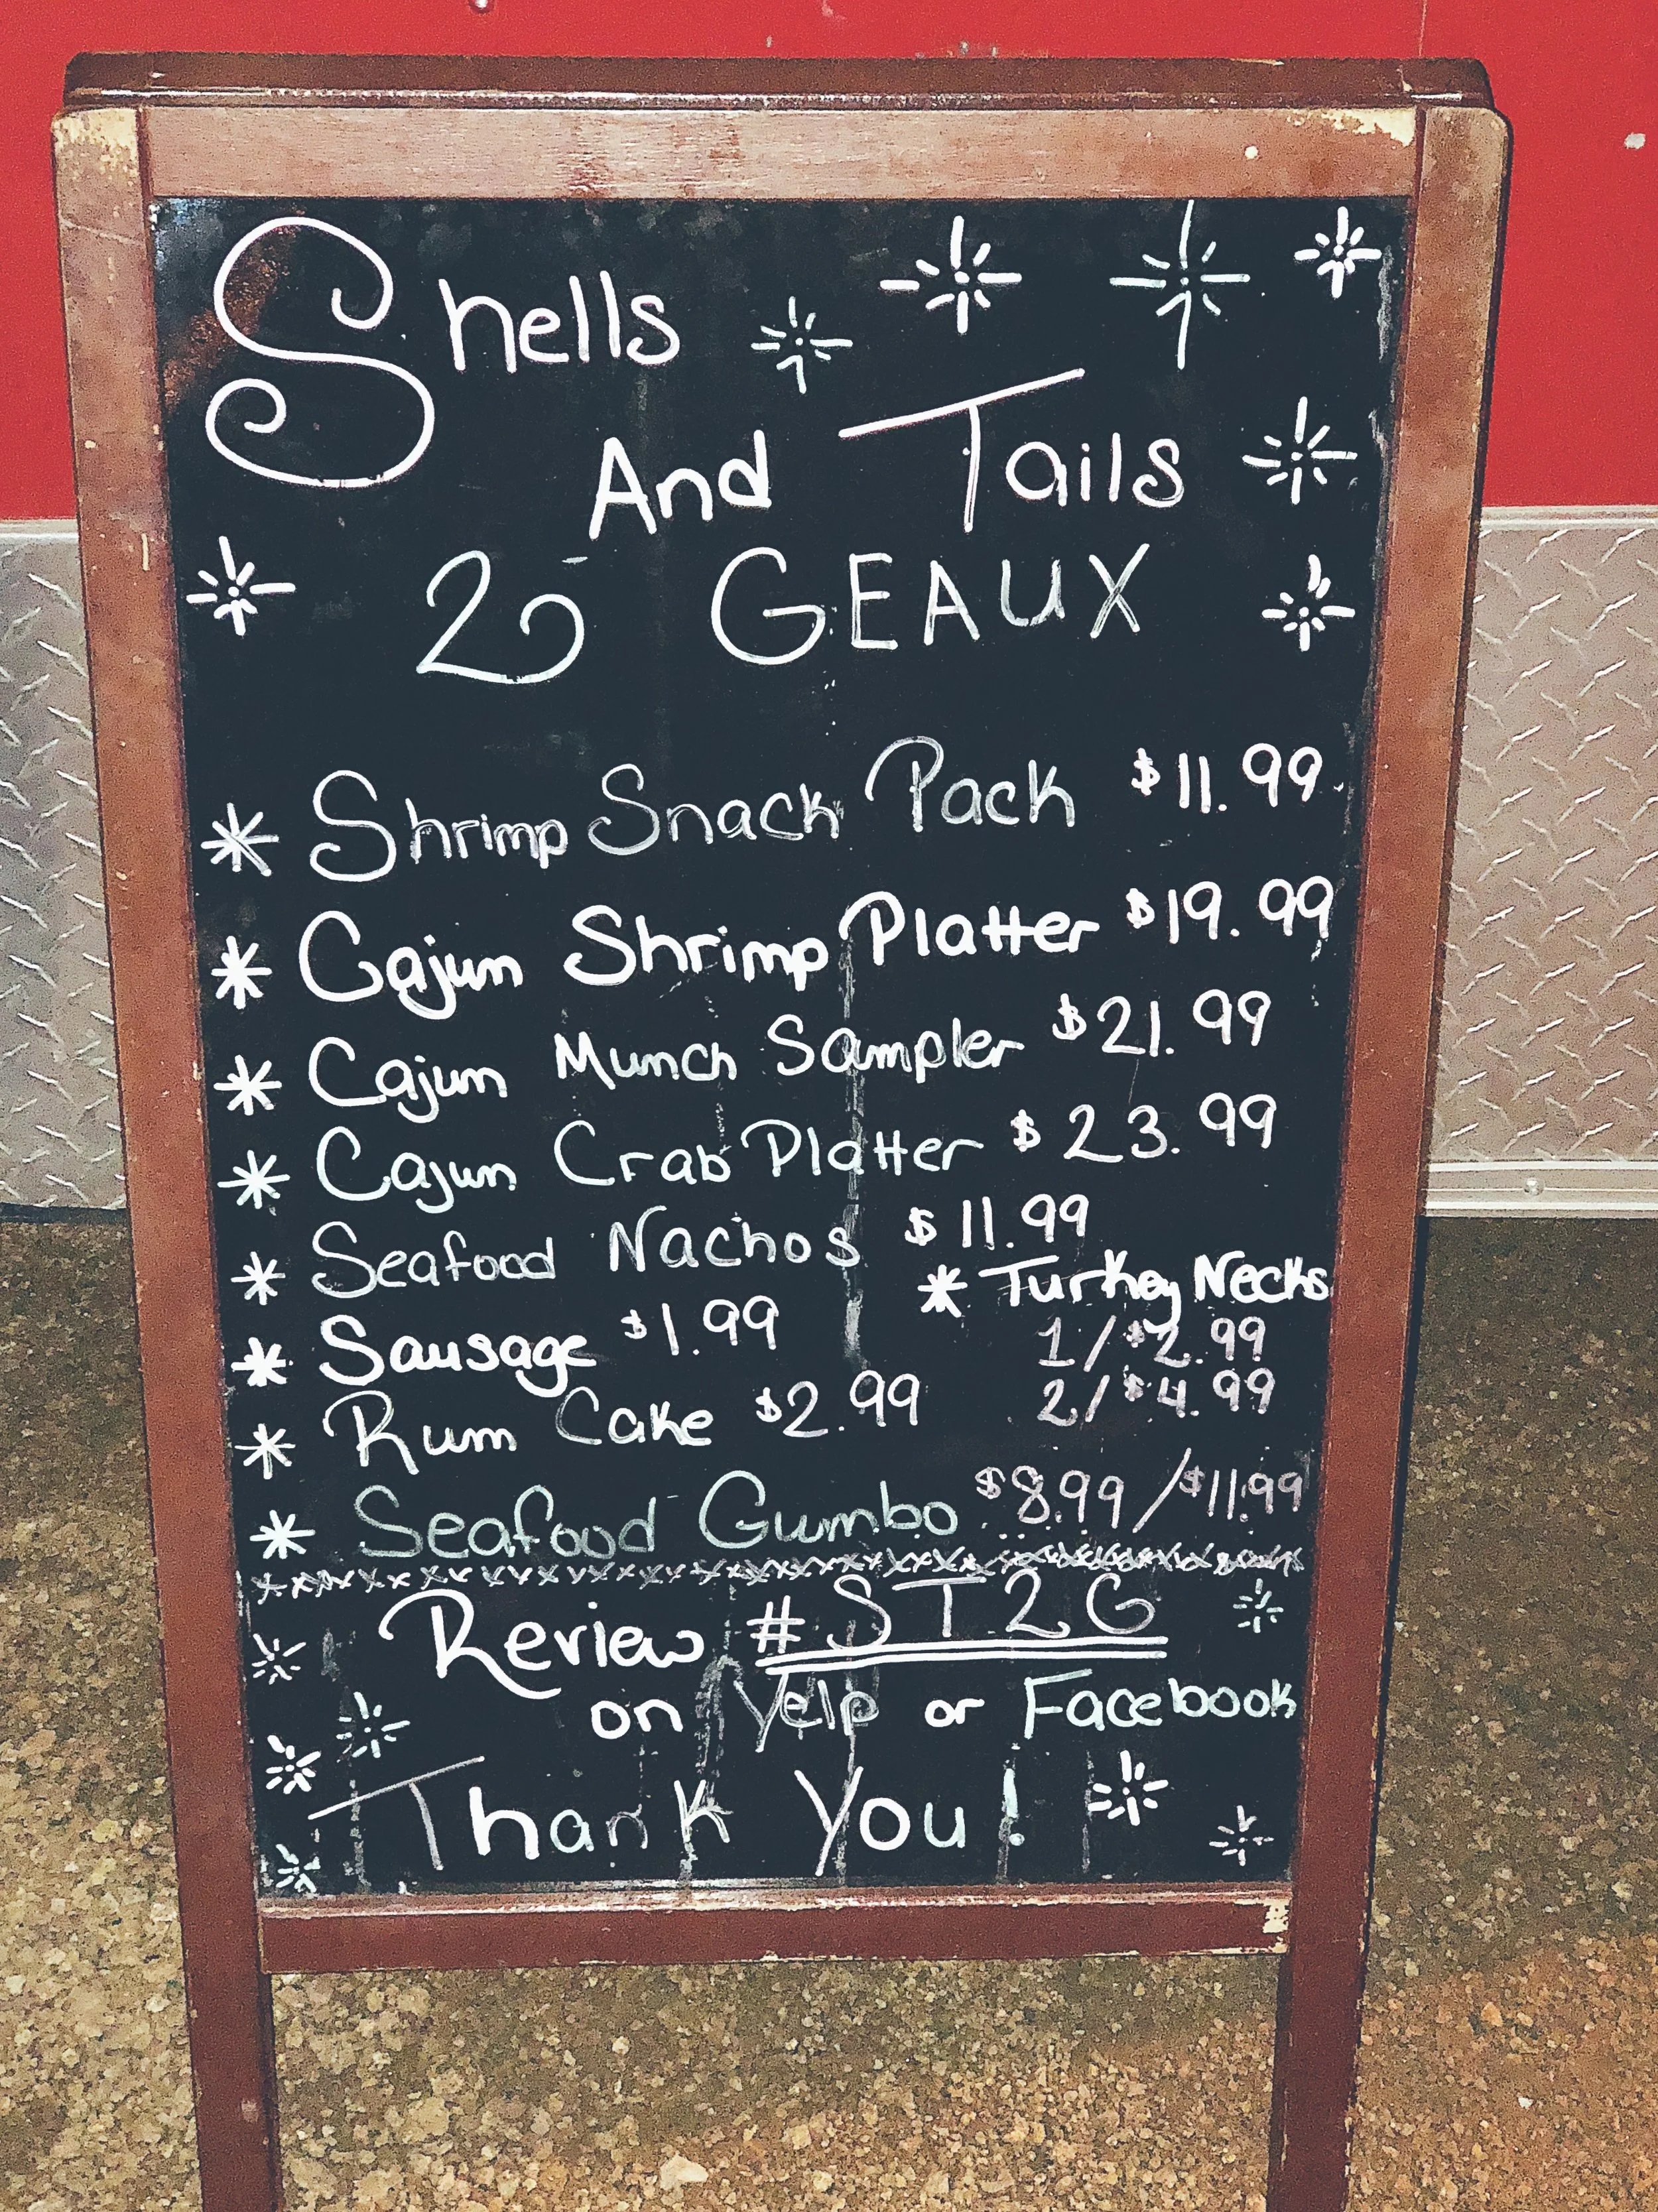 Shells
And Tails
2 GEAUX
* Shrimp Snack Pack $11.99
* Cajun Shrimp Platter $19.99
* Cajun Munch Sampler $21.99
* Cajun Crab Platter $23.99
* Seafood Nachos $11.99
* Turkey Necks
1/$2.99
2/$4.99
* Sausage $1.99
* Rum Cake $2.99
* Seafood Gumbo $8.99/$11.99
Review #ST2G
on Yelp or Facebook
Thank You!